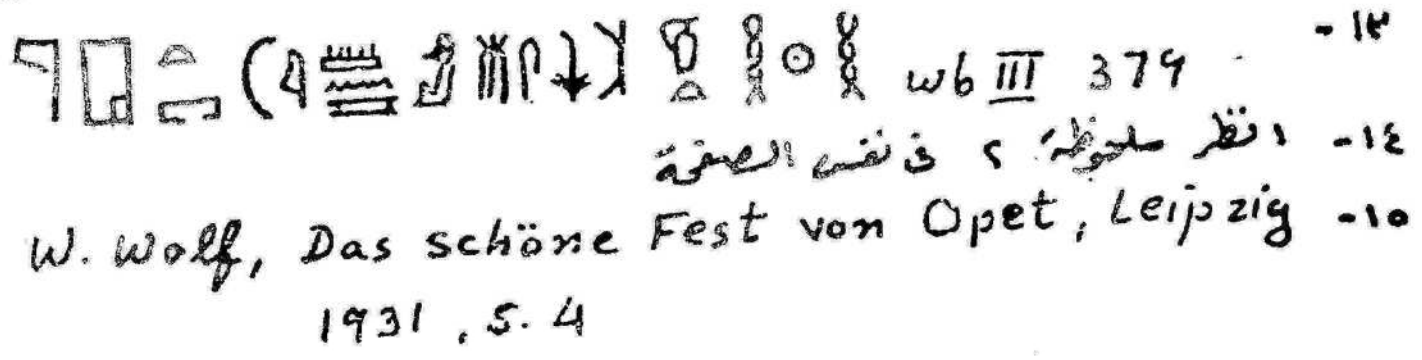 ١٣- wb III 379
١٤- انظر ملحوظة ٢ فى نفس الصفحة
١٥- W. Wolf, Das schöne Fest von Opet, Leipzig
1931, S. 4